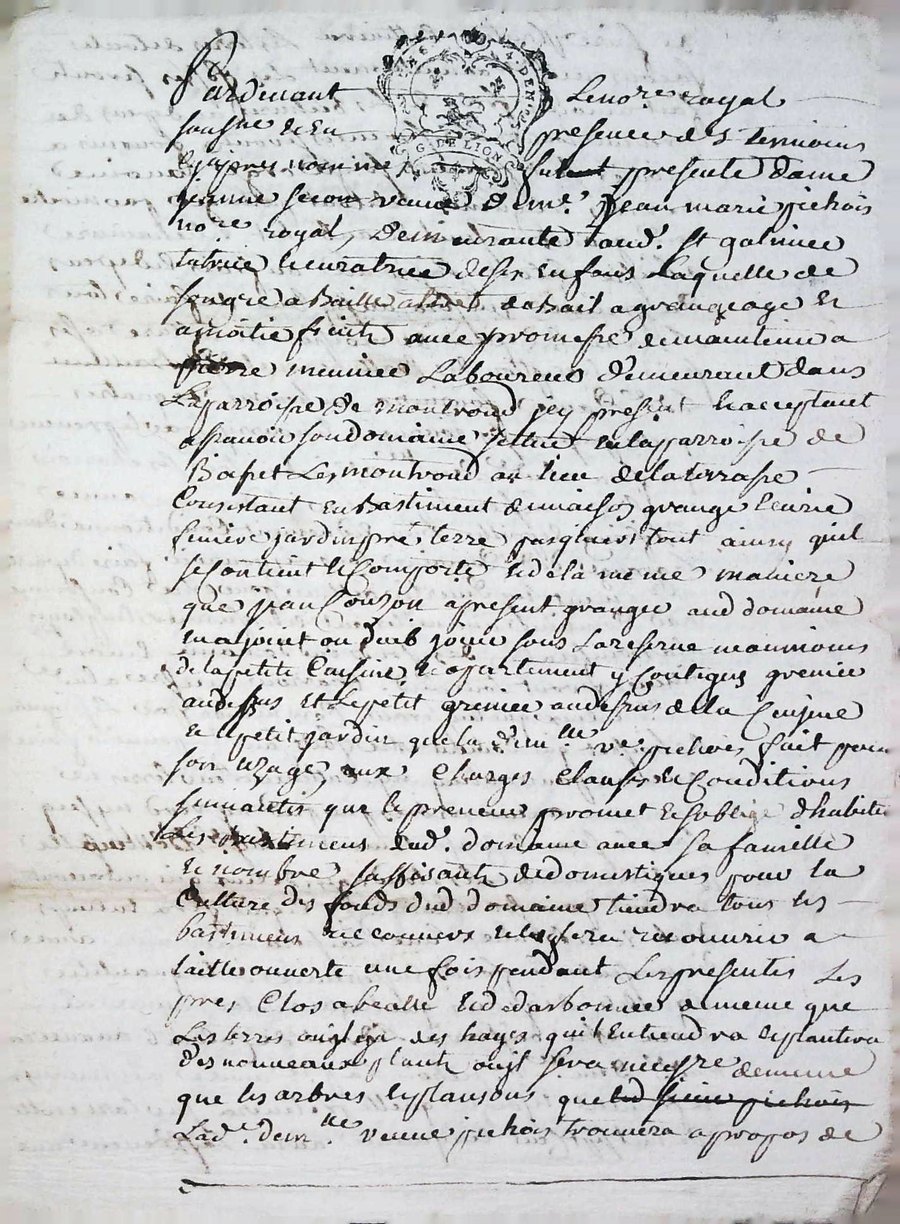 Pardevant Le nore royal
soussné et en presence des temoins
cy apres nommé fut presente dame
veuve de me. Jean marie pichois
nore royal, demeurante aud. St galmier
tutrice et curatrice de ses Enfans Laquelle de
son gre a Baillé a titre de Bail a grangeage et
a moitié fruits avec promesse de maintenue a
pierre meunier Laboureur demeurant dans
La parroisse de montrond icy present et acceptant
a sçavoir son domaine scitué en la parroisse de
Boisset Les montrond au lieu de la terrasse
Consistant en Bastiment de maison grange Ecurie
feniere jardin pré terre pasquiers tout ainsy quil
se Contient et Comporte et de la meme maniere
que Jean Couzon a present granger aud domaine
en a joui ou dub jouir sous La reserve neanmoins
de la petite Cuisine et apartement y Contigus grenier
au dessus et Le petit grenier au dessus de la Cuisine
et petit jardin que lad demlle ve pichois fait pour
son uzage, aux Charges Clauses et Conditions
suivantes que le preneur promet et soblige dhabiter
Les bastimens dud. domaine avec sa famille
et nombre suffisante de domestiques pour la
Culture des fonds dud domaine tiendra tous les
bastimens recouverts et les fera recouvrir a
taille ouverte une fois pendant Les presentes Les
pres Clos a et de meme que
Les terres ou il y a des hayes quil Entiendra et plantera
des nouveaux plants ou il sera necessre de meme
que les arbres et plansons que led sieur pichois
Lade. demlle veuve pichois trouvera a propos de
G. DE LION